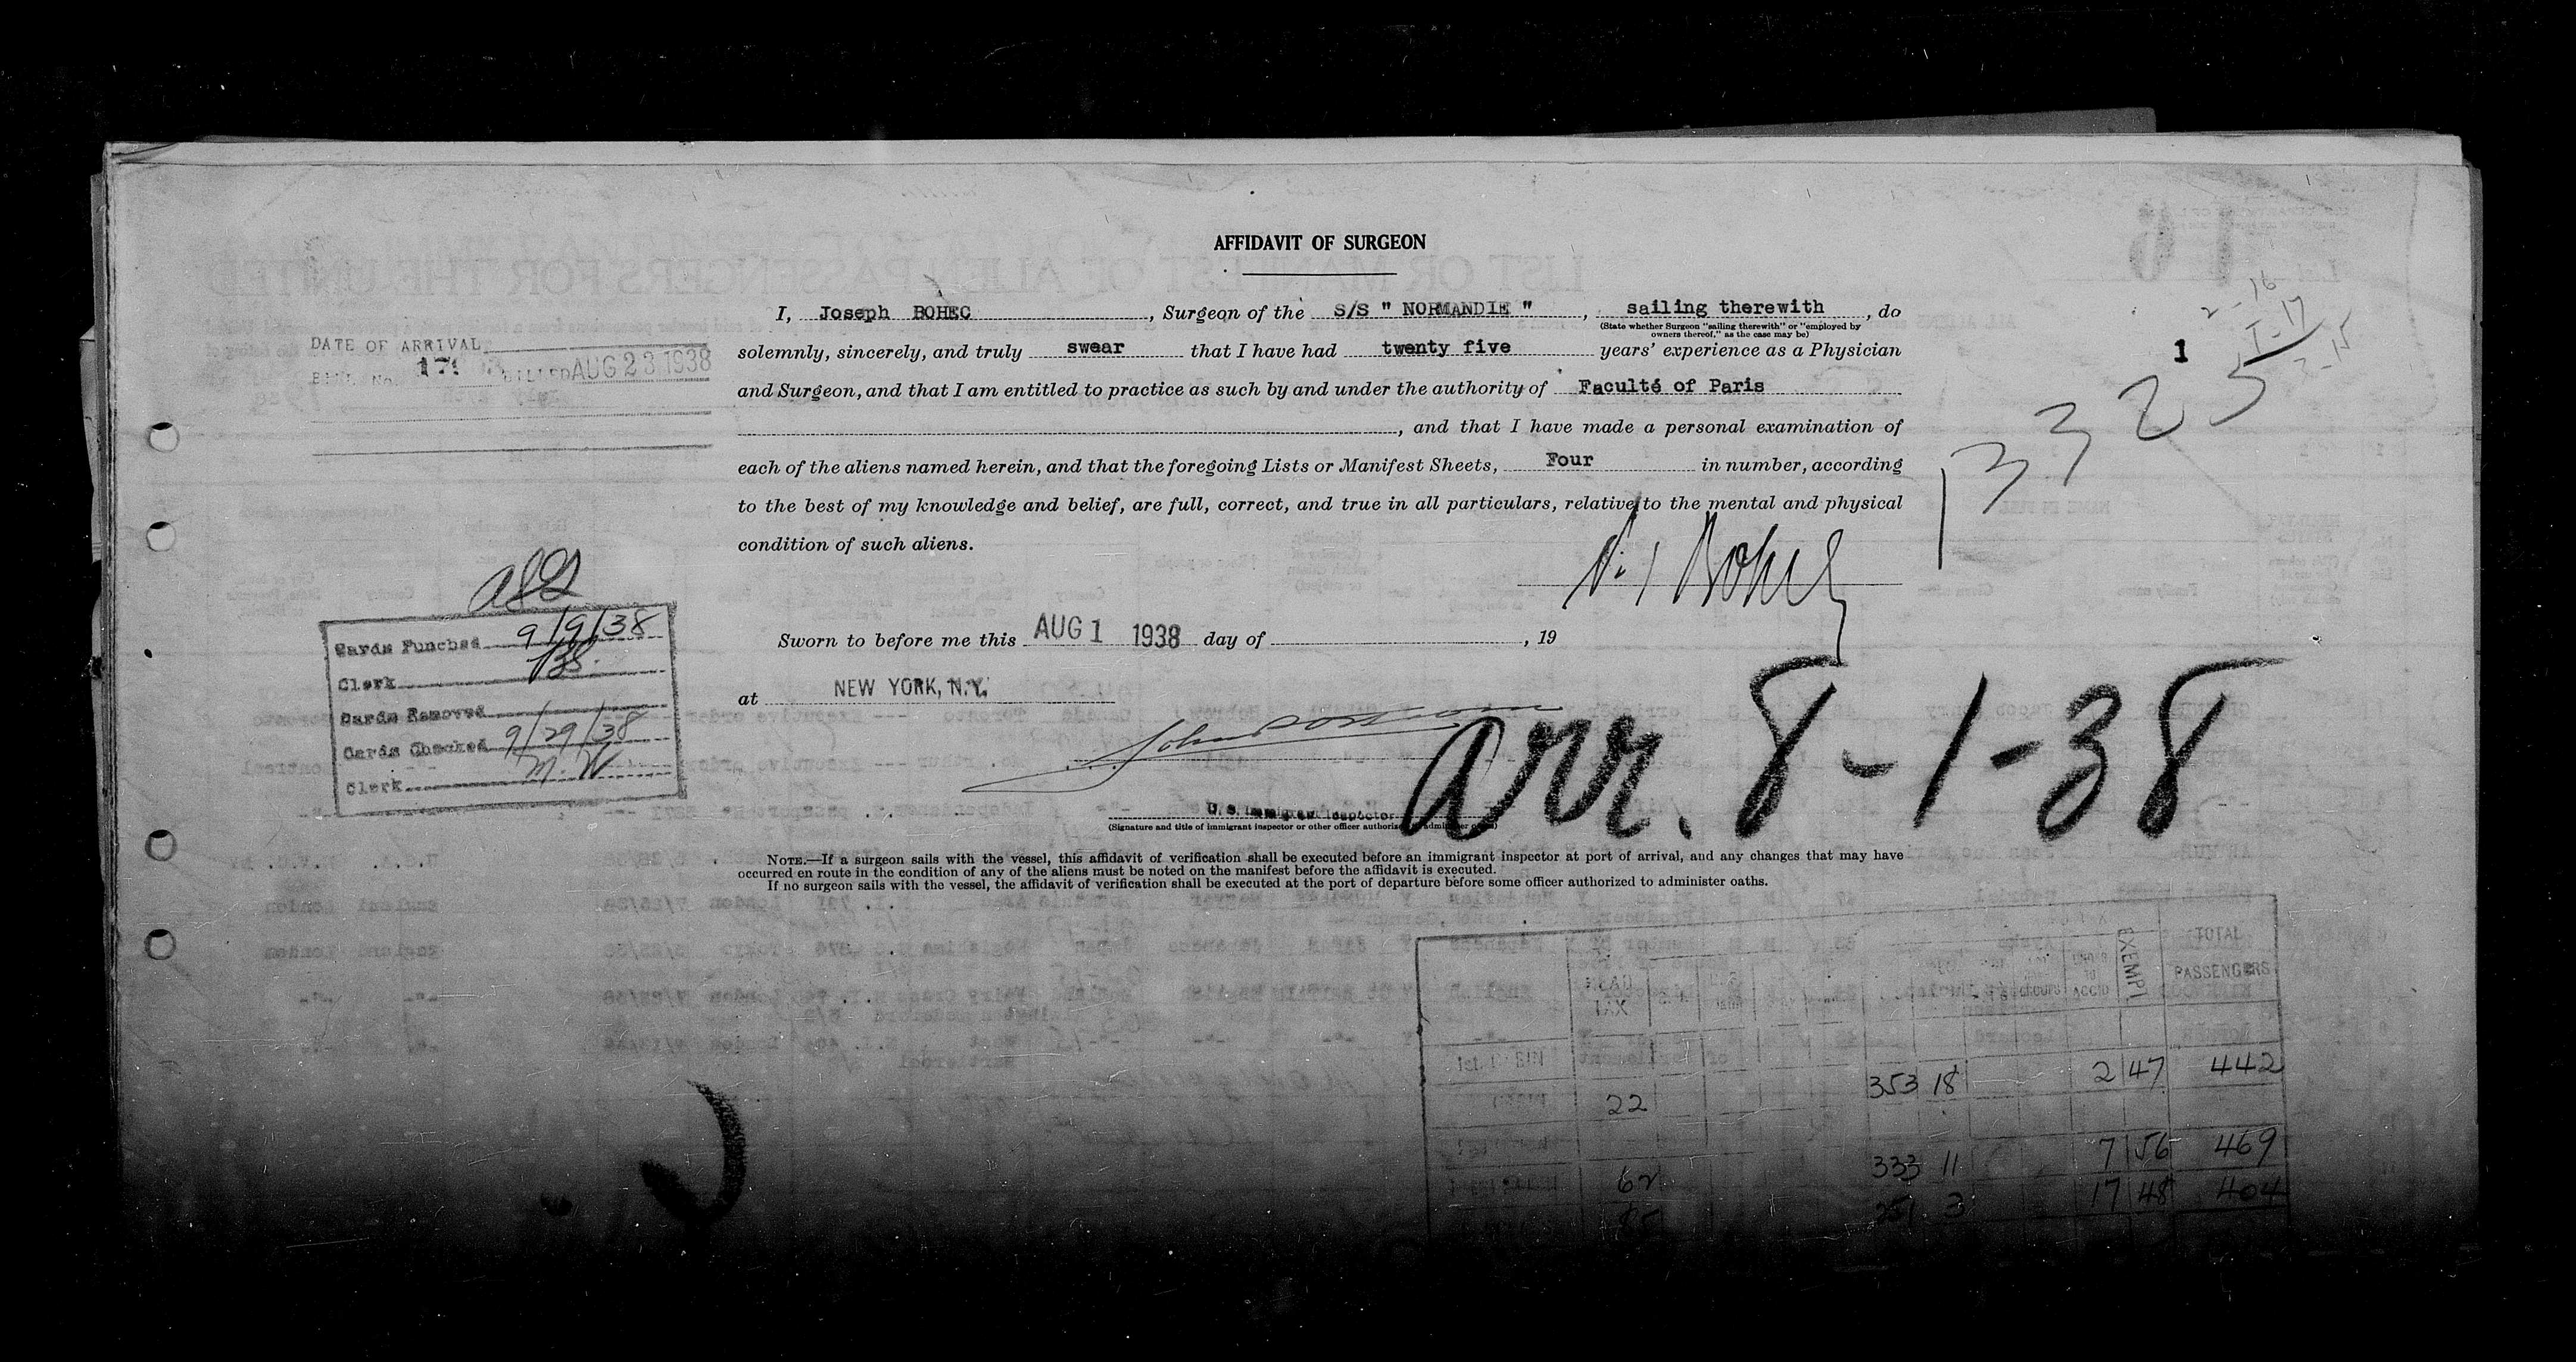 AFFIDAVIT OF SURGEON
I, Joseph BOHEC, Surgeon of the S/S " NORMANDIE ", sailing therewith, do
(State whether Surgeon "sailing therewith" or "employed by
owners thereof," as the case may be)
solemnly, sincerely, and truly swear that I have had twenty five years' experience as a Physician
and Surgeon, and that I am entitled to practice as such by and under the authority of Faculté of Paris
, and that I have made a personal examination of
each of the aliens named herein, and that the foregoing Lists or Manifest Sheets, Four in number, according
to the best of my knowledge and belief, are full, correct, and true in all particulars, relative to the mental and physical
condition of such aliens.
Bohec
Sworn to before me this AUG 1 1938 day of , 19
at NEW YORK, N.Y.
U. S. Immigrant Inspector
(Signature and title of immigrant inspector or other officer authorized to administer oaths)
NOTE.—If a surgeon sails with the vessel, this affidavit of verification shall be executed before an immigrant inspector at port of arrival, and any changes that may have
occurred en route in the condition of any of the aliens must be noted on the manifest before the affidavit is executed.
If no surgeon sails with the vessel, the affidavit of verification shall be executed at the port of departure before some officer authorized to administer oaths.
DATE OF ARRIVAL
BILL No. 179 BILLED AUG 23 1938
Cards Punched 9/9/38
Clerk
Cards Removed
Cards Checked 9/29/38
Clerk M. W
1
2-16
1-17
3-15
13325
arr. 8-1-38
HEAD TAX EXEMPT TOTAL PASSENGERS
353 18 2 47 442
22
333 11 7 56 469
62
251 3 17 48 404